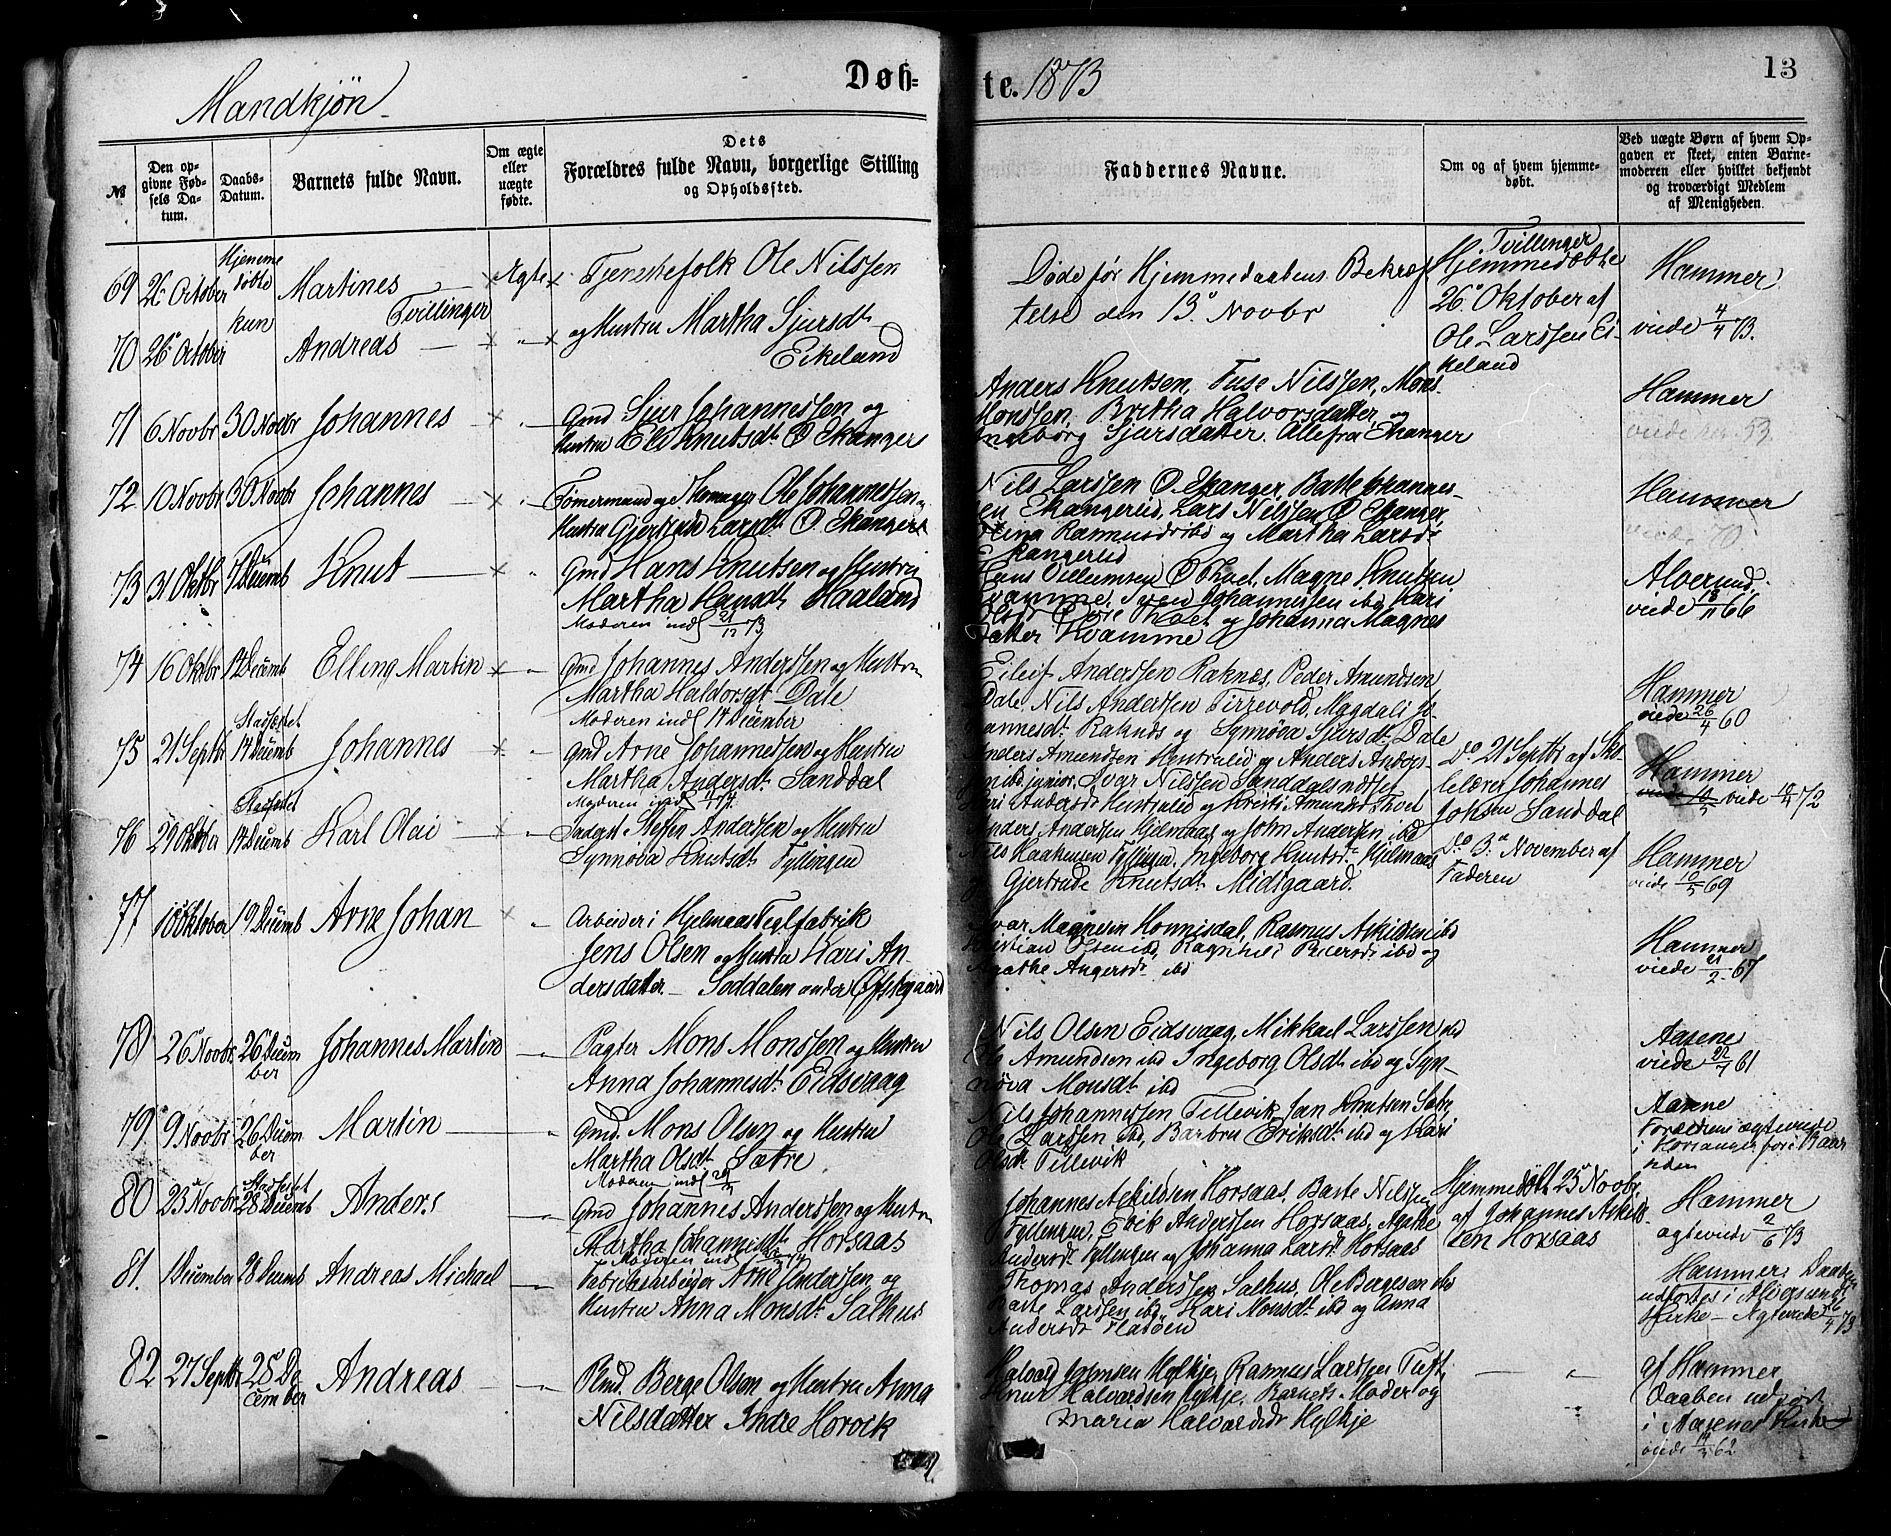 Mandkjøn
Døb=
te. 1873
13
№
Den opgivne Fødsels Datum.
Daabs-Datum.
Barnets fulde Navn.
Om ægte eller uægte fødte.
Dets Forældres fulde Navn, borgerlige Stilling og Opholdssted.
Faddernes Navne.
Om og af hvem hjemmedøbt.
Ved uægte Børn af hvem Opgaven er skeet, enten Barnemoderen eller hvilket bekjendt og troværdigt Medlem af Menigheden.
69 26 October Hjemme døbte kun Martines Tvillinger Ægte Tjenestefolk Ole Nilssen
70 26 October Andreas og Hustru Martha Sjursdt. Eikeland
Døde før Hjemmedaabens Bekræf
telse den 13 Novbr
Tvillinger
Hjemmedøbte
26 Oktober af
Ole Larssen Ei-
keland
Hammer
viede 4/4 73.
71 6 Novbr 30 Novbr Johannes Gmd Sjur Johannessen og
Hustru Eli Knutsdt. Ø. Ekanger
Anders Knutsen, Tuse Nilssen, Mons
Monssen, Britha Halvorsdatter og
Ingeborg Sjursdatter. Alle fra Ekanger
Hammer
72 10 Novbr 30 Novbr Johannes Tømermand og Ole Johannessen og
Hustru Gjertrud Larsdt. Ø. Ekanger
Nils Larssen Ø. Ekanger, Baste Johannes-
en Ekangerlid, Lars Nilssen Ø Ekanger,
Stina Rasmusdt ibd og Martha Larsdt
Ekangerlid
Hammer
viede 70
73 31 Oktbr 7 Decemb Knut Gmd Hans Knutsen og Hustru
Martha Hansdt. Haaland
Moderen indl 21/12 73
Hans Villumsen Ø Tvedt, Magne Knutsen
Kvamme, Johannessen ibd, Kari
og Johanna Magnes
datter Kvamme
Alversund.
viede 18/11 66
74 16 Oktbr 14 Decemb Elling Martin Gmd Johannes Anderssen og Hustru
Martha Haldorsdt. Dale
Moderen indl 14 December
Eilert Anderssen Raknes, Peder Amundsen
Dale, Nils Andersen Tirrevold, Magdali Jo-
hannesdt. Raknes og Synnøva Sjursdt. Dale
Hammer
viede 26/4 60
75 21 Septbr Stadfæstet 14 Decemb Johannes Gmd Arne Johannessen og Hustru
Martha Andersdt. Sanddal
Anders Amundsen Hentralid og Anders Anders-
ibd junior, Ivar Nilssen Sanddalsnæsset
Kari Andersdt Hentralid og Kristi Amundsdt Tveit
Do 21 Septbr af Sko-
lelærer Johannes
Johsen Sanddal
Hammer
viede 12/4 72
76 29 Oktober Stadfæstet 14 Decemb Karl Olai Inderst Steffen Anderssen og Hustru
Synnøva Knutsdt. Fyllingen
Anders Anderssen Hjelmaas og John Andersen ibd
Nils Haakensen Fyllingen, Ingeborg Knutsdt. Hjelmaas
og Gjertrude Knutsdt. Midtgaard.
Do 3 November af
Faderen
Hammer
viede 10/5 69
77 18 Oktober 19 Decemb Arne Johan Arbeider i Hjelmaas Teglfabrik
Jens Olsen og Hustru Kari An-
dersdatter Soddalen under Øfstegaard
Ivar Magnesen Honnisdal, Rasmus Askildsen ibd
Kristian Olsen ibd, Ragnhild Peersdt ibd og
Agathe Angersdt ibd
Hammer
viede 21/2 67
78 26 Novbr. 26 Decem ber Johannes Martin Pagter Mons Monssen og Hustru
Anna Johannesdt. Eidsvaag
Nils Olsen Eidsvaag, Mikkael Larssen ibd
Ole Amundsen ibd Ingeborg Olsdt. ibd og Syn-
nøva Monsdt. ibd
Aasene
viede 22/4 61
79. 9 Novbr 26 Decem ber Martin Gmd. Mons Olsen og Hustru
Martha Olsdt. Sætre
Moderen indl
Nils Johannessen Tellevik, Jan Knutsen Sætre,
Ole Larssen ibd, Barbru Eriksdt. ibd og Kari
Olsdt. Tellevik
Aasene
Forældrene ægteviede
i Korskirken for i Baar
siden
80 23 Novbr Stadfæstet 28 Decemb Anders Gmd Johannes Anderssen og Hustru
Martha Johannesdt. Horsaas
Johannes Askildsen Horsaas, Baste Nilssen
Fyllingen, Erik Anderssen Horsaas, Agathe
Andersdt. Fyllingen og Johanna Larsdt. Horsaas
Hjemmedøbt 25 Novbr.
af Johannes Askild-
sen Horsaas
Hammer
ægteviede 2/6 73
81. 1 December 28 Decemb Andreas Michael Fabriksarbeider Arne Anderssen og
Hustru Anna Monsdt. Salhus
Thomas Anderssen Salhus, Ole Bagesen ibd
Baste Larssen ibd, Kari Monsdt. ibd og Anna
Andersdt Flatøen
Hammer. Daaben
udførtes i Alversund
Kirke – Ægteviede 26/4 73
82 27 Septbr 25 De cember Andreas Plmd. Berge Olsen og Hustru Anna
Nilsdatter Indre Hordvik
Halvard Johnsen Hylkje, Rasmus Larssen Tuft
Knut Halvardsen Hylkje, Barnets Moder og
Maria Halvardsdt Hylkje
af Hammer
Daaben udført
i Aasene Kirke
viede 62